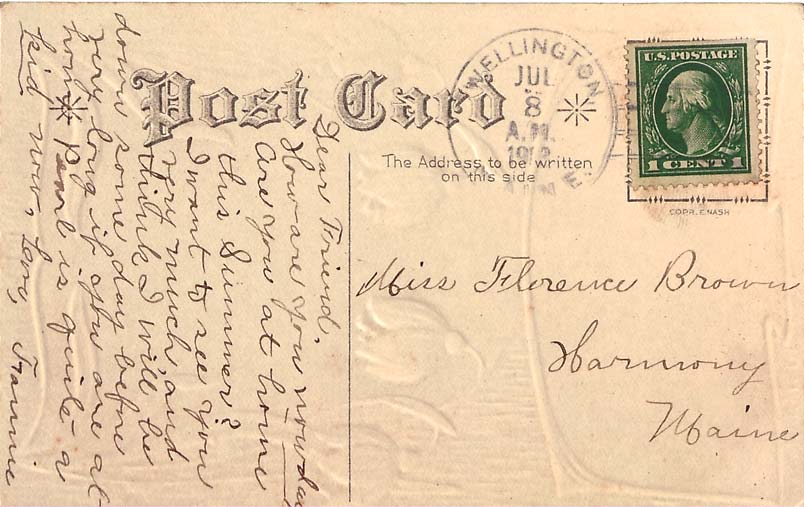 Post Card
The Address to be written
on this side
WELLINGTON
JUL
8
A.M.
1912
MAINE.
U.S. POSTAGE
1 CENT 1
COPR. E. NASH
Miss Florence Brown
Harmony
Maine
Dear Friend,
How are you now days
Are you at home
this Summer?
I want to see you
very much and
think I will be
down some day before
very long if you are at
home Pearl is quite a
kid now, Love, Frannie